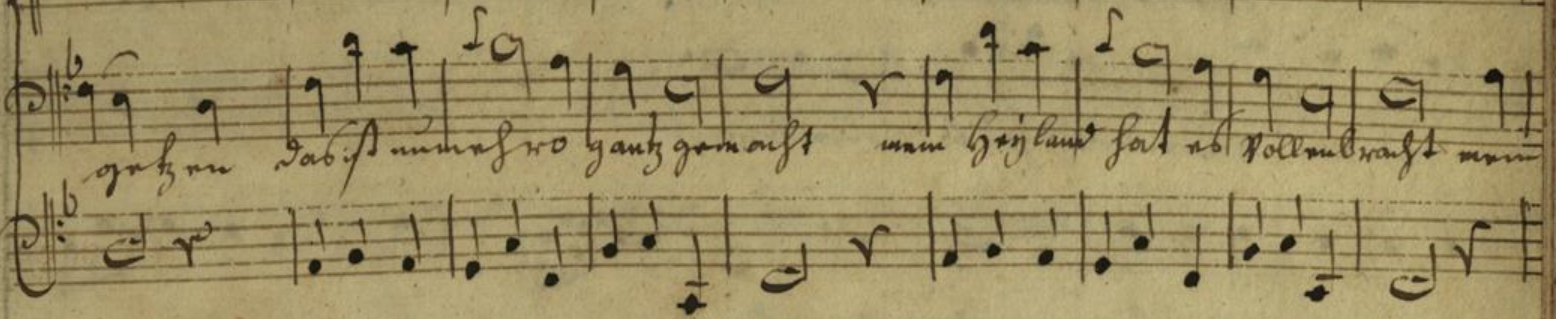 getzen das ist nunmehro gantz gemacht mein Heyland hat es Vollenbracht mein